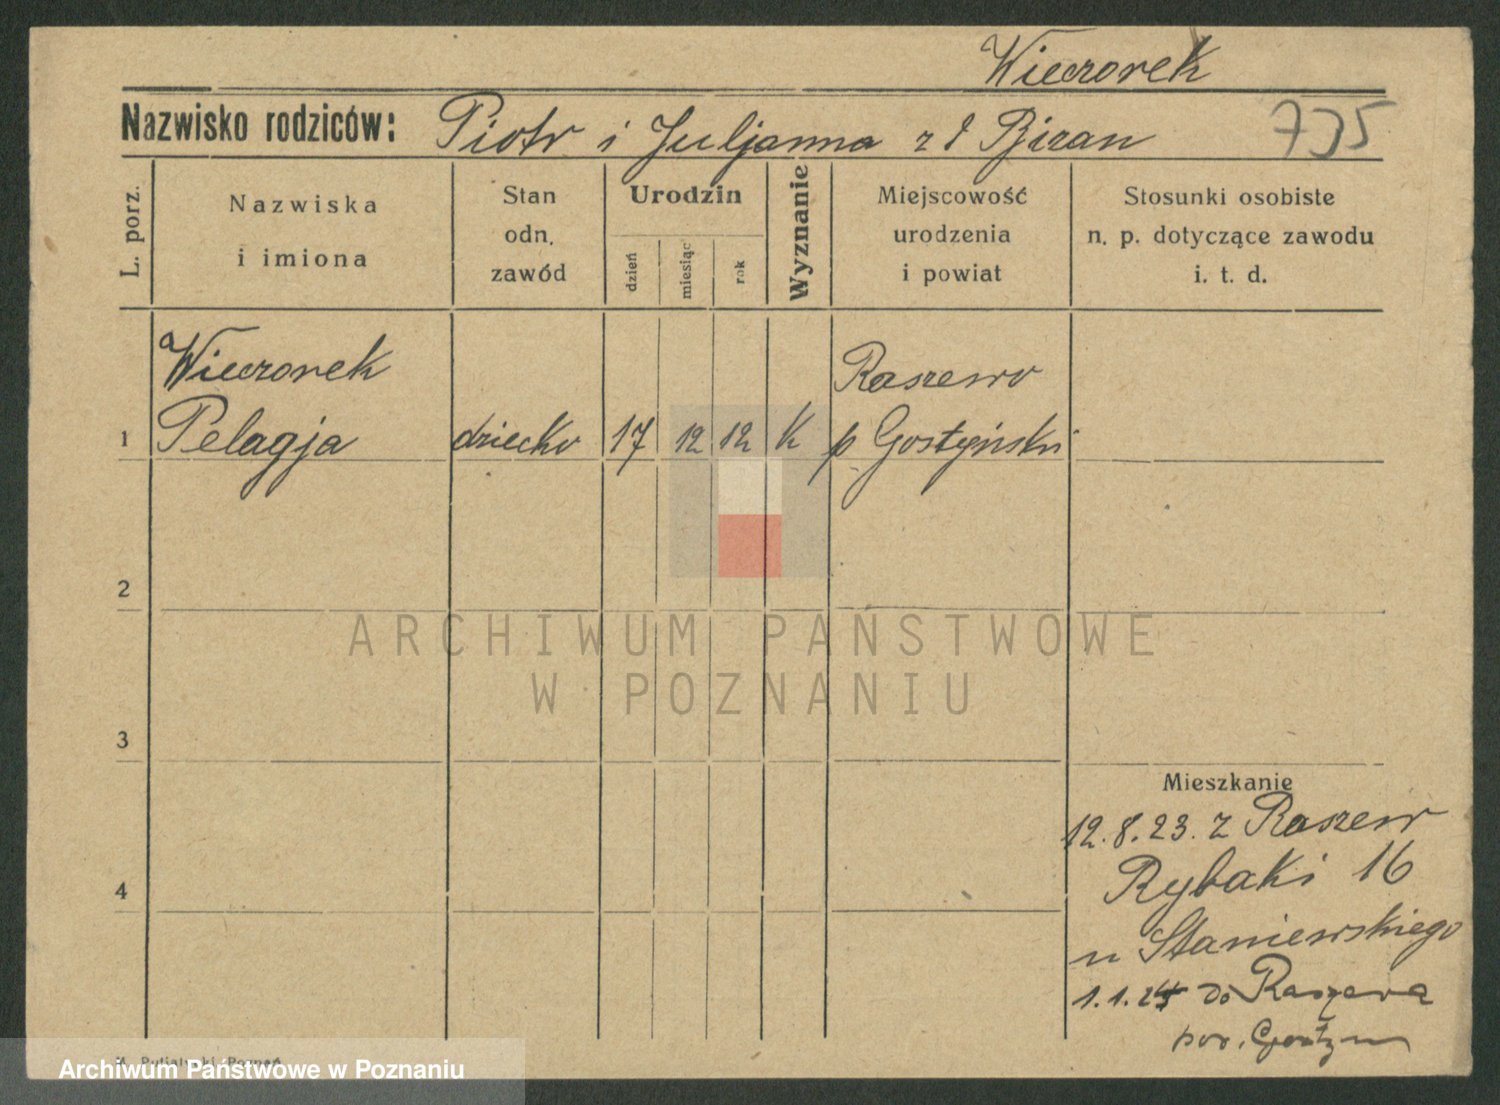 Wieczorek
Nazwisko rodziców: Piotr i Juljanna z d Bizan 735
L. porz.
Nazwiska i imiona
Stan odn. zawód
Urodzin
dzień
miesiąc
rok
Wyznanie
Miejscowość urodzenia i powiat
Stosunki osobiste n. p. dotyczące zawodu i. t. d.
Wieczorek Raszewo
1 Pelagja dziecko 17 12 12 K p Gostyński
2
ARCHIWUM PAŃSTWOWE
W POZNANIU
3
Mieszkanie
12.8.23. z Raszew
Rybaki 16
4
u Staniewskiego
1.1.25 do Raszewa
pow. Gostyn
Poznań
Archiwum Państwowe w Poznaniu